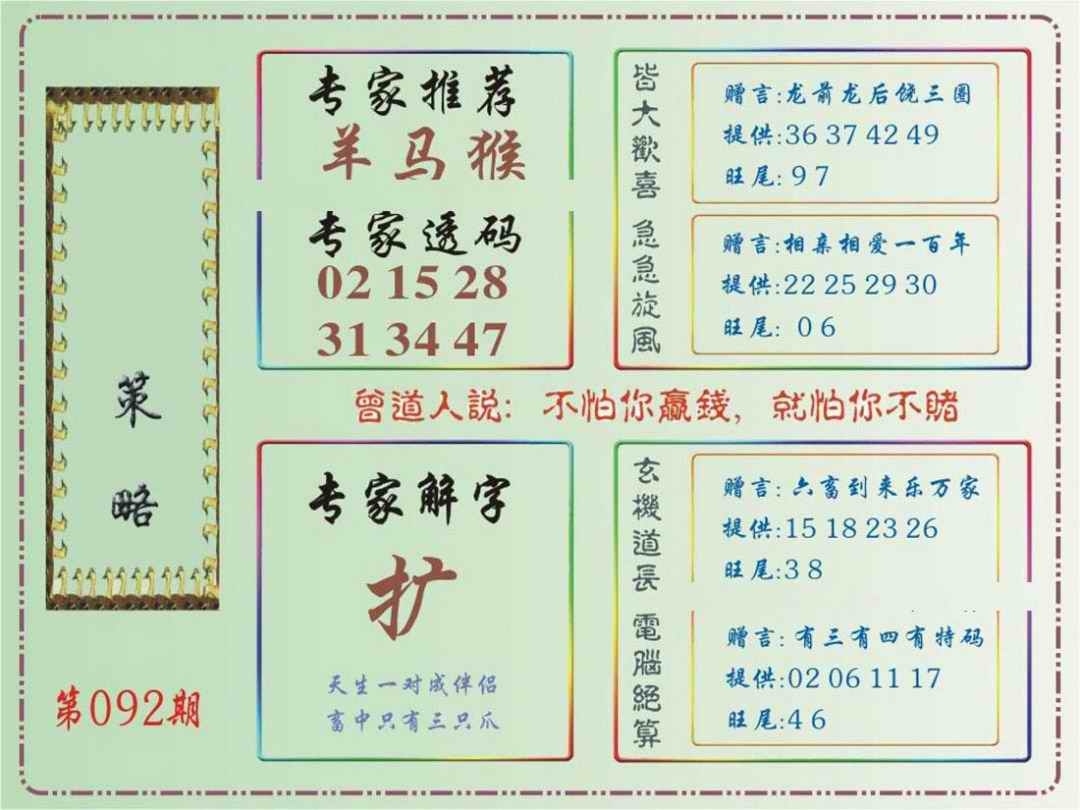 策略
第092期
专家推荐
羊马猴
专家透码
02 15 28
31 34 47
皆大歡喜
赠言:龙前龙后饶三圈
提供:36 37 42 49
旺尾:9 7
急急旋風
赠言:相亲相爱一百年
提供:22 25 29 30
旺尾: 0 6
曾道人説: 不怕你赢錢, 就怕你不賭
专家解字
扩
天生一对成伴侣
畜中只有三只爪
玄機道長
赠言: 六畜到来乐万家
提供:15 18 23 26
旺尾:3 8
電腦絕算
赠言: 有三有四有特码
提供:02 06 11 17
旺尾:4 6